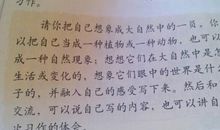 习作。
请你把自己想象成大自然中的一员，你
以把自己当成一种植物或一种动物，也可以
成一种自然现象；想想它们在大自然中是怎
生活或变化的，想象它们眼中的世界是什么
子的，并融入自己的感受写下来。然后和
交流，可以说自己写的内容，也可以讲自
此习作的体会